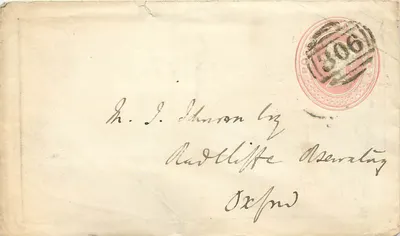 306
M. J. Johnson Esq
Radcliffe Observatory
Oxford